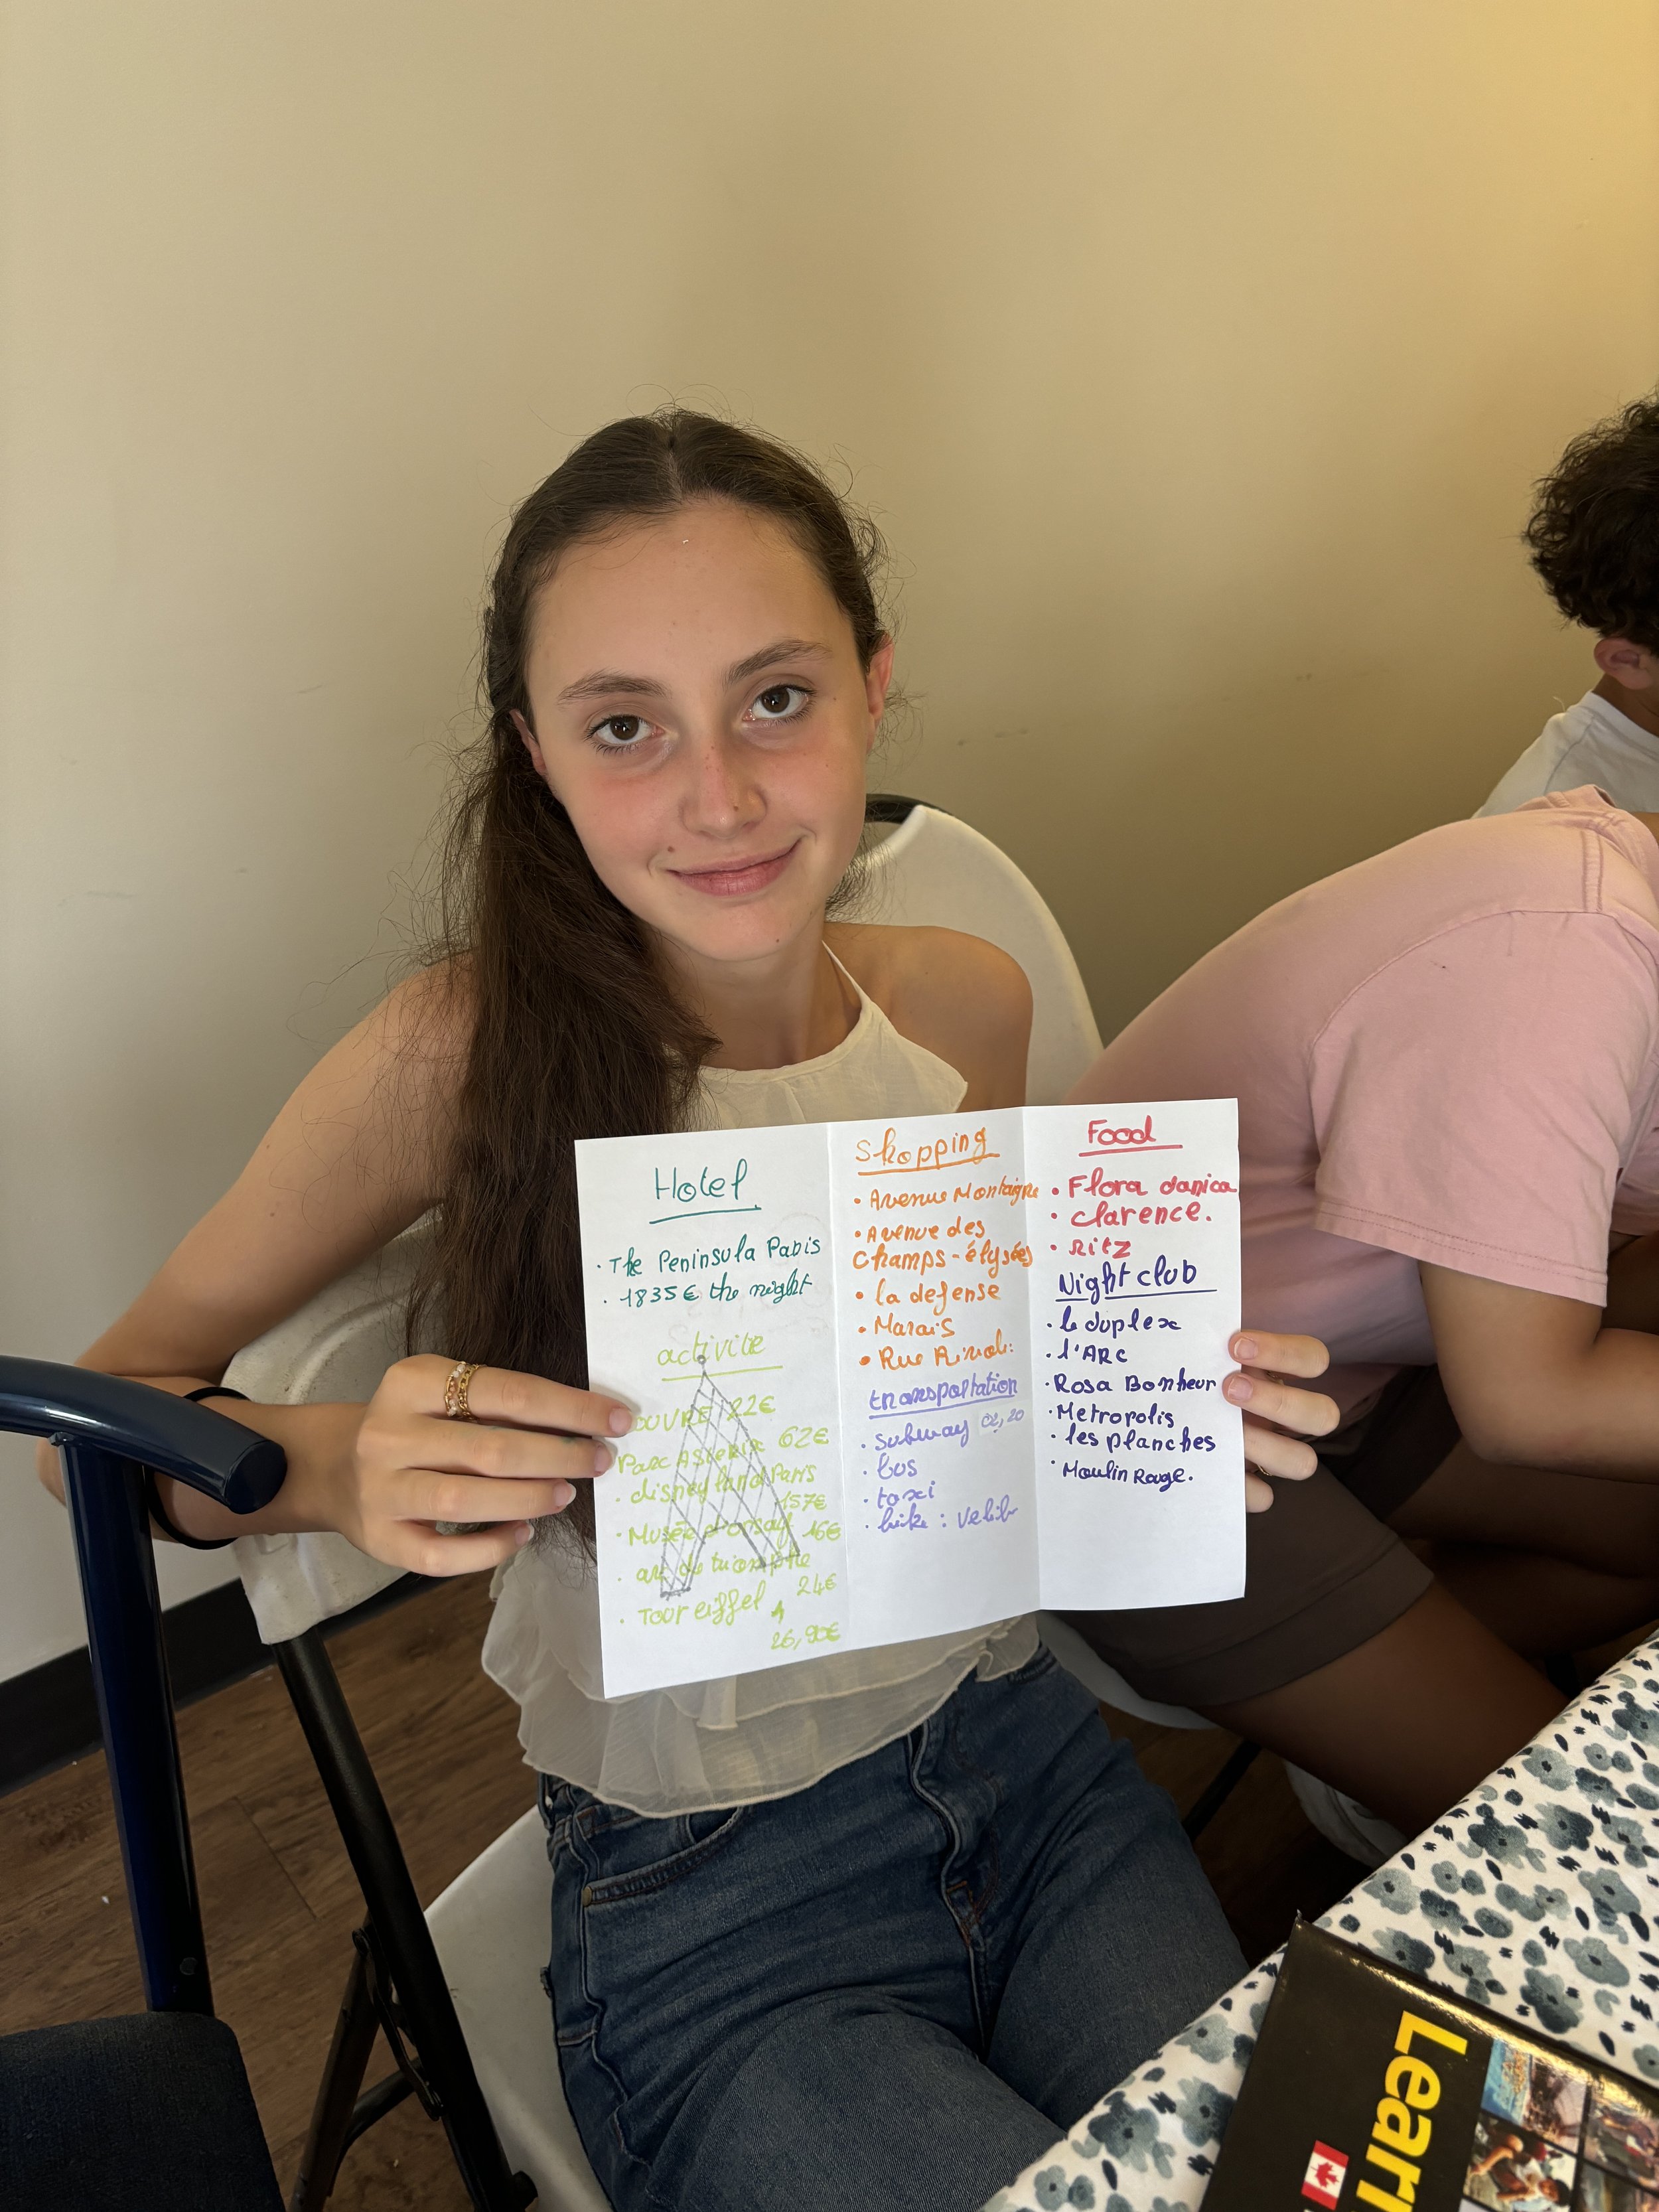 Hotel
• The Peninsula Paris
• 1835€ the night
activite
LOUVRE 22€
Parc Asterix 62€
• disneyland Paris
157€
• Musée d'orsay 16€
• arc de triomphe
24€
• Tour eiffel
26,90€
Shopping
• Avenue Montaigne
• Avenue des
Champs-élysées
• la defense
• Marais
• Rue Rivoli
transportation
• subway 02,20
• bus
• taxi
• bike : velib
Food
• Flora danica
• clarence.
• Ritz
Night club
• le duplex
• l'ARC
• Rosa Bonheur
• Metropolis
• les planches
• Moulin Rouge.
Learn